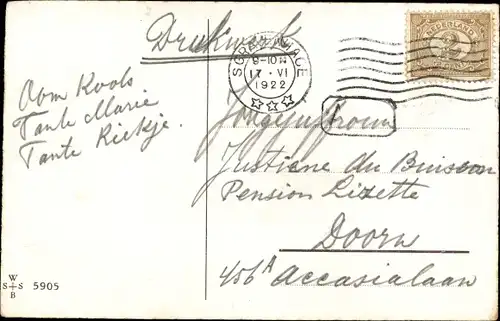 Drukwerk
'SGRAVENHAGE
9-10 N
17 · VI
1922
NEDERLAND
Oom Koob
Tante Marie
Tante Riekje.
Jongejuffrouw
Justiene du Buisson
Pension Lizette
Doorn
456A Accasialaan
W
S S 5905
B